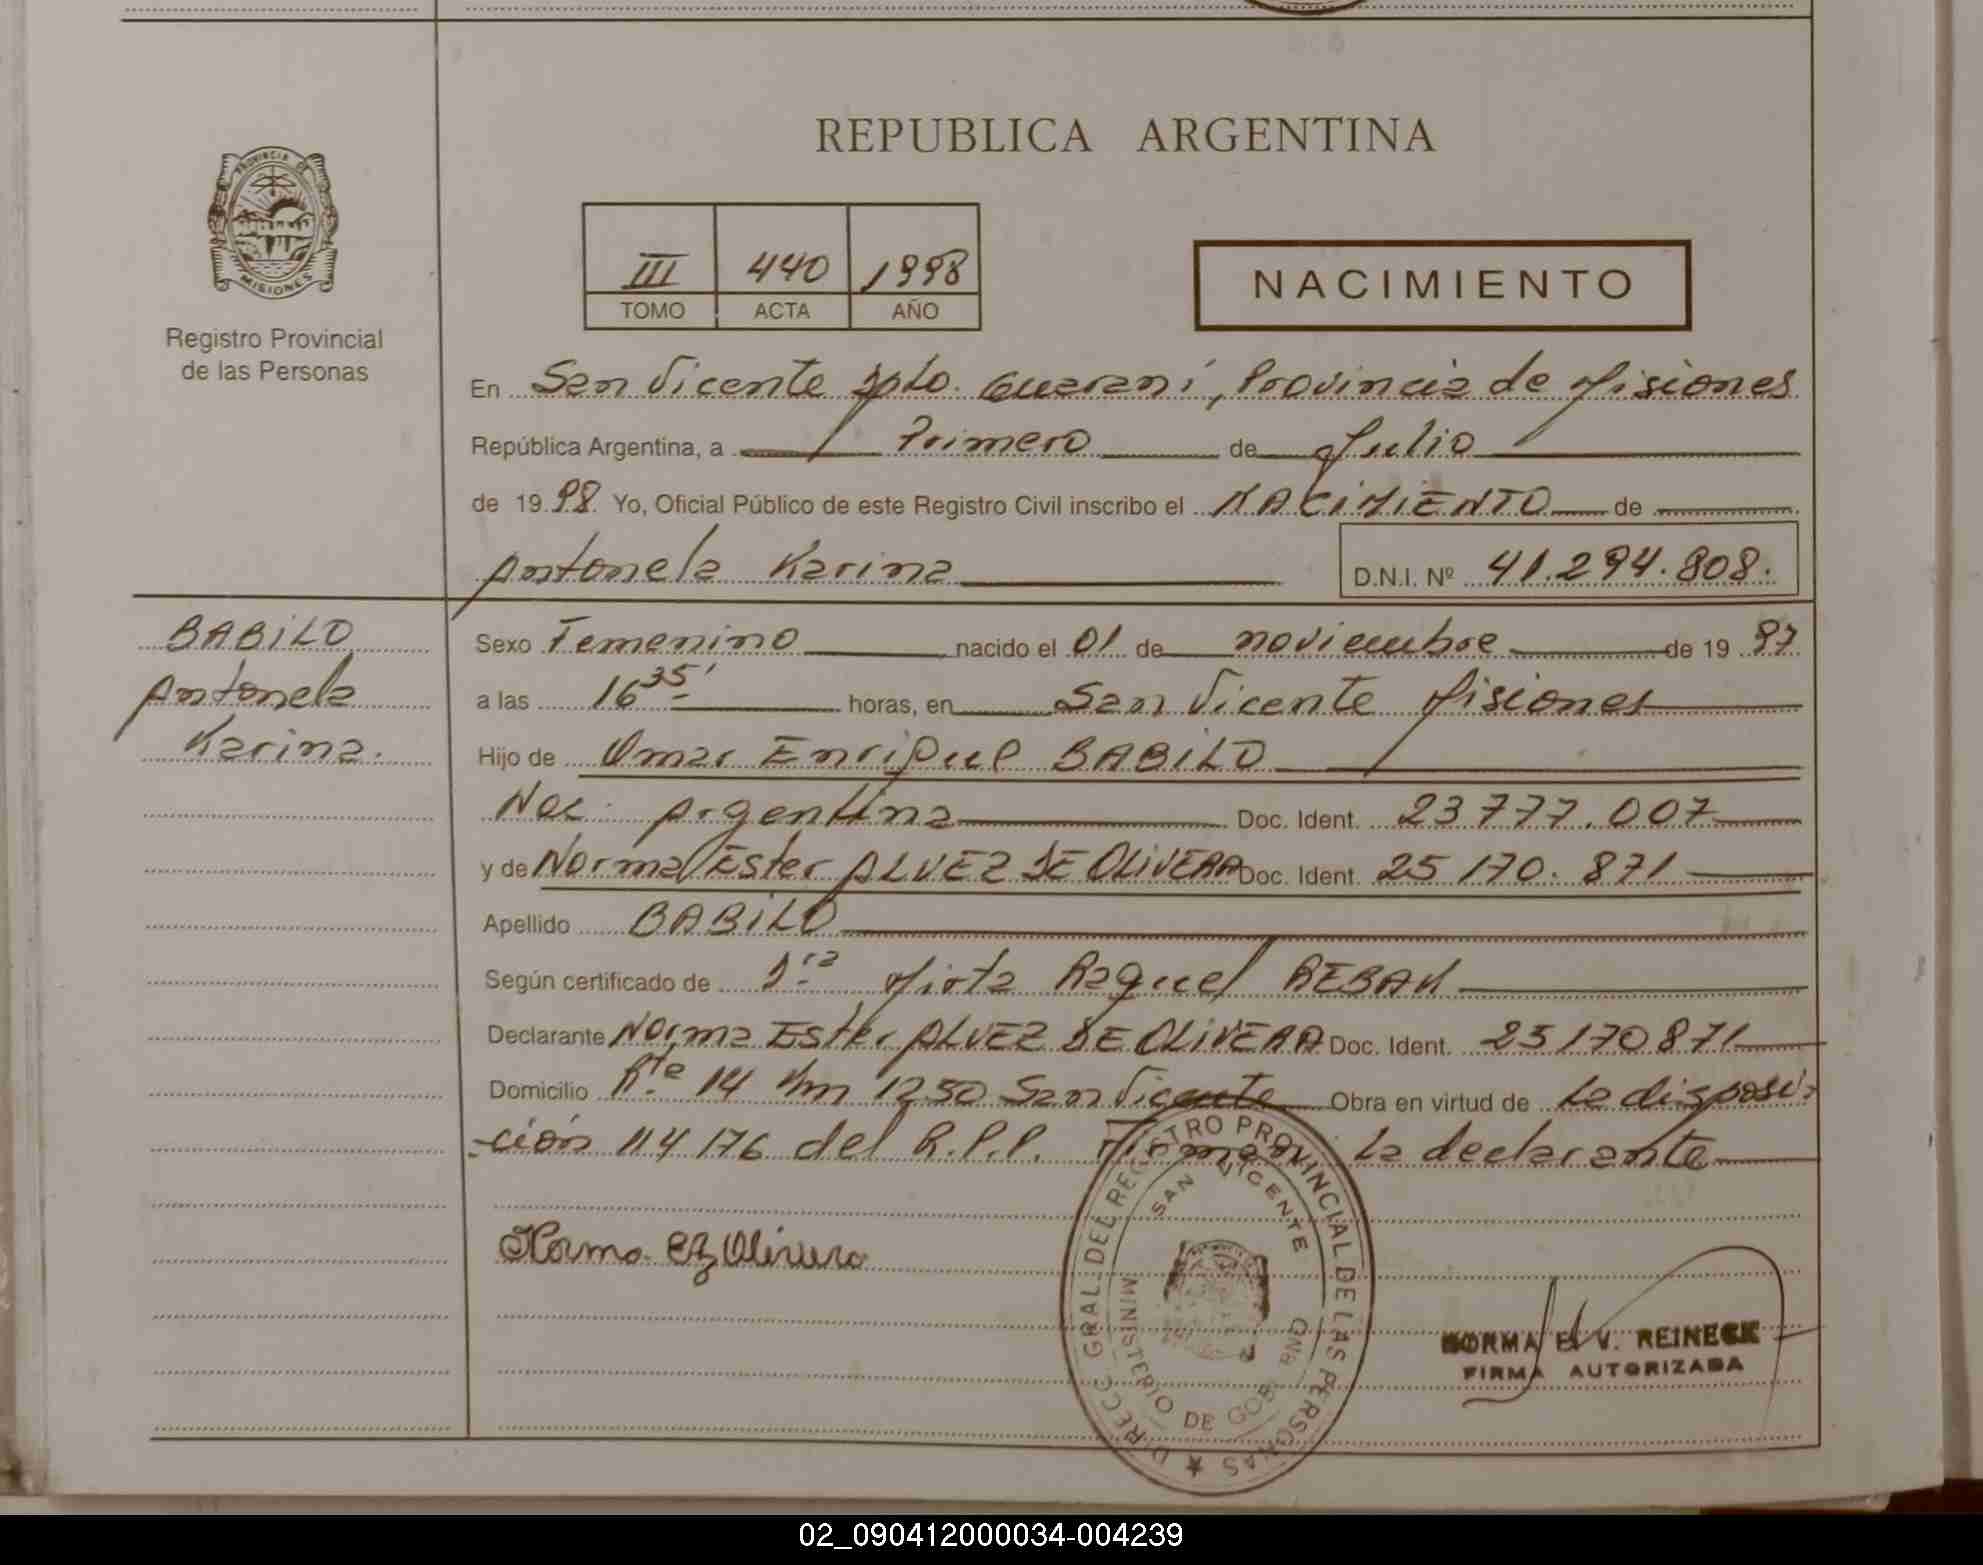 REPUBLICA ARGENTINA
PROVINCIA DE
MISIONES
Registro Provincial
de las Personas
III 440 1998
TOMO ACTA AÑO
NACIMIENTO
En San Vicente Dpto. Guaraní, Provincia de Misiones
República Argentina, a Primero de Julio
de 1998 Yo, Oficial Público de este Registro Civil inscribo el NACIMIENTO de
Antonela Karina D.N.I. Nº 41.294.808.
BABILO
Antonela
Karina.
Sexo Femenino nacido el 01 de noviembre de 1997
a las 16 35' horas, en San Vicente Misiones
Hijo de Omar Enrique BABILO
Nac. Argentina Doc. Ident. 23777.007
y de Norma Ester ALVEZ DE OLIVERA Doc. Ident. 25170.871
Apellido BABILO
Según certificado de Dra Mirta Raquel REBAK
Declarante Norma Ester ALVEZ DE OLIVERA Doc. Ident. 25170871
Domicilio Rta 14 Km 1250 San Vicente Obra en virtud de La disposi-
-ción 114176 del R.P.P. Firman: La declarante
Norma Olivera
DIRECC GRAL. DEL REGISTRO PROVINCIAL DE LAS PERSONAS
SAN VICENTE
MINISTERIO DE GOBIERNO
NORMA E. V. REINECK
FIRMA AUTORIZADA
02_090412000034-004239